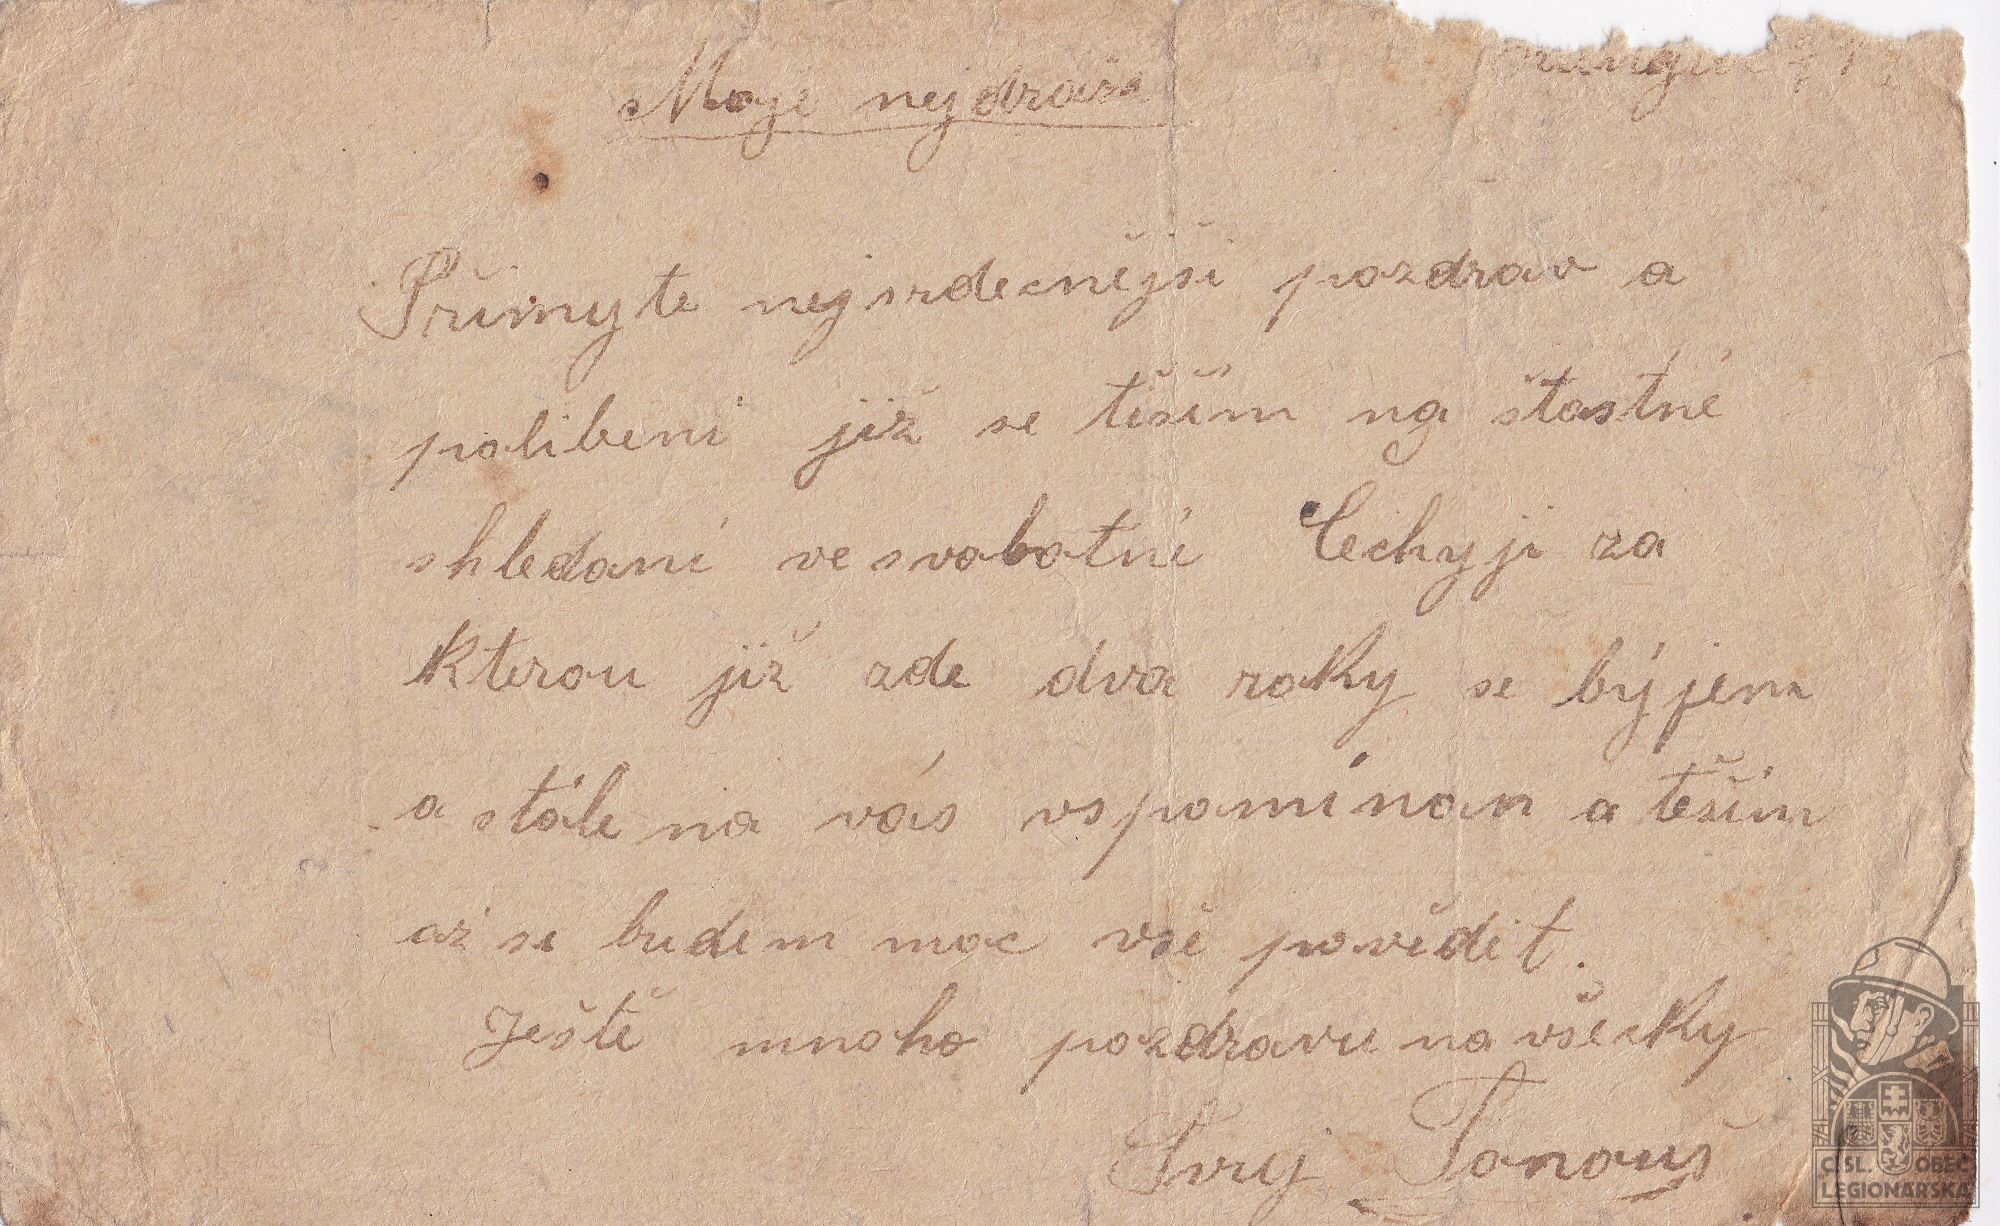 Moje nejdražs
Přimyte nejsrdecnějši pozdrav a
polibeni již se těším na štastné
shledani ve svobotni Cechyji za
kterou již zde dva roky se býjem
a stále na vás vspomínam a těším
až se budem moc vše povědit.
Ještě mnoho pozdravu na všecky
Tvuj Tonouš
ČSL. OBEC
LEGIONÁŘSKÁ